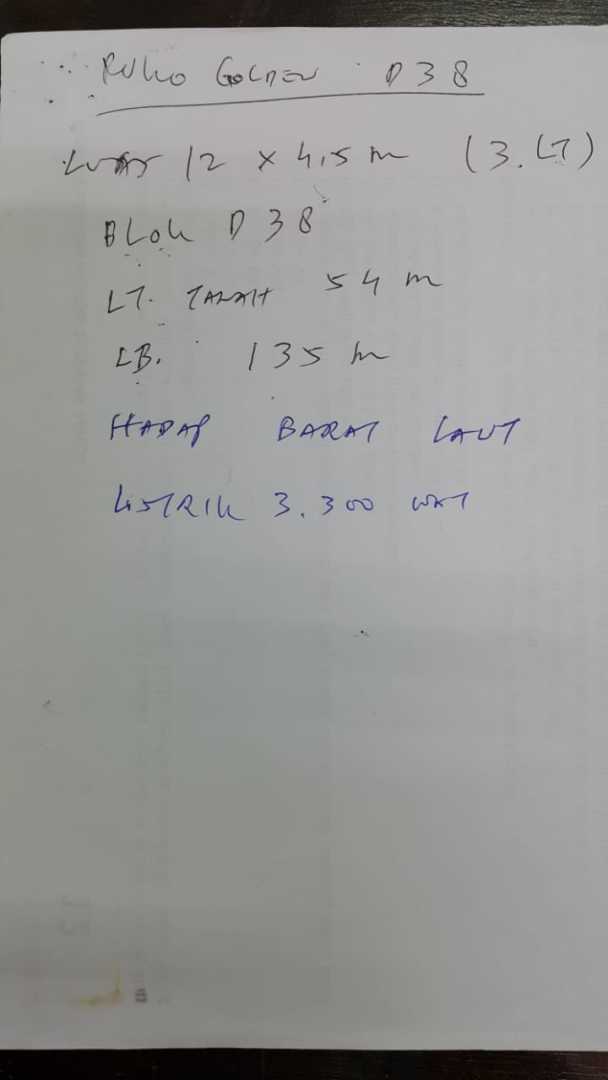 RUKO GOLDEN D38
LUAS 12 x 4,5 m (3.LT)
BLOK D38
LT. TANAH 54 m
LB. 135 m
HADAP BARAT LAUT
LISTRIK 3.300 WAT